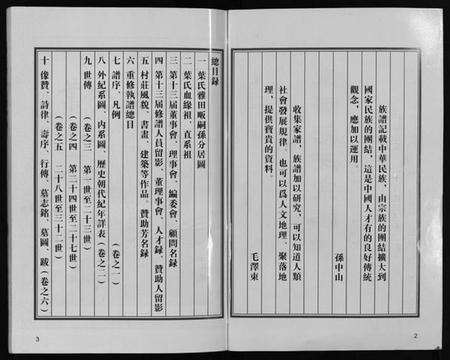 族譜記載中華民族，由宗族的團結擴大到
國家民族的團結，這是中國人才有的良好傳統
觀念，應加以運用。
孫中山
收集家譜、族譜加以研究，可以知道人類
社會發展規律，也可以爲人文地理、聚落地
理，提供寶貴的資料。
毛澤東
2
總目錄
一 葉氏雅田畈嗣孫分居圖
二 葉氏血緣祖、直系祖
三 第十三屆董事會、理事會、編委會、顧問名録
四 第十三屆修譜人員留影、董理事會、人才録、贊助人留影
五 村莊風貌、書畫、建築等作品、贊助芳名録
六 重修執譜總目
七 譜序、凡例（卷之一）
八 外紀系圖、内系圖、歷史朝代紀年詳表（卷之二）
九 世傳（卷之三 第一世至二十三世）
（卷之四 第二十四世至二十七世）
（卷之五 二十八世至三十二世）
十 像贊、詩律、壽序、行傳、墓志銘、墓圖、跋（卷之六）
3